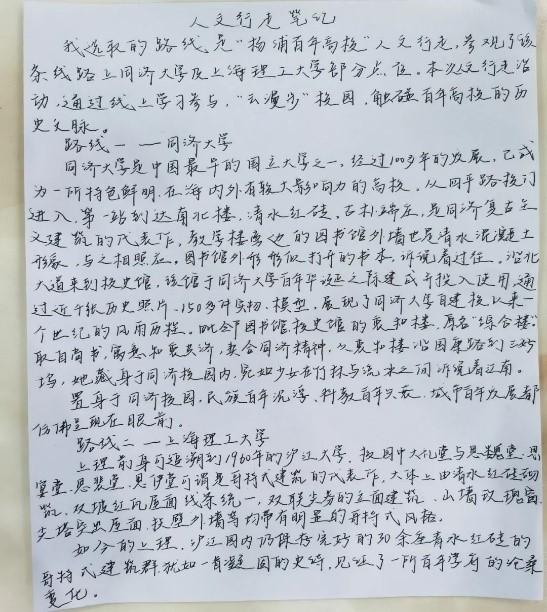 人文行走笔记
我选取的路线是“杨浦百年高校”人文行走,参观了该
条线路上同济大学及上海理工大学部分点位。本次人文行走活
动,通过线上学习参与,“云漫步”校园,触碰百年高校的历
史文脉。
路线一——同济大学
同济大学是中国最早的国立大学之一,经过100多年的发展,已成
为一所特色鲜明、在海内外有较大影响力的高校。从四平路校门
进入,第一站到达南北楼,清水红砖,古朴端庄,是同济复古主
义建筑的代表作,教学楼旁边的图书馆外墙也是清水混凝土
形象,与之相照应。图书馆外形形似打开的书本,诉说着过往。沿北
大道来到校史馆,该馆于同济大学百年华诞之际建成并投入使用,通
过近千张历史照片、150多件实物、模型,展现了同济大学自建校以来一
个世纪的风雨历程。毗邻图书馆、校史馆的衷和楼,原名“综合楼”,
取自商书,寓意和衷共济,契合同济精神,从衷和楼沿园景路到三好
坞,她藏身于同济校园内,宛如少女在竹林与流水之间诉说着江南。
置身于同济校园,民族百年沉浮,科教百年兴衰,城市百年发展都
仿佛呈现在眼前。
路线二——上海理工大学
上理前身可追溯到1906年的沪江大学,校园中大礼堂与思魏堂、思
晏堂、思裴堂、思伊堂可谓是哥特式建筑的代表作,大体上由清水红砖砌
筑,双坡红瓦屋面线条统一,双联尖券的立面建筑、山墙玫瑰窗、
尖塔突出屋面,扶壁外墙等均带有明显的哥特式风格。
如今的上理,沪江园内仍保存完好的30余座清水红砖的
哥特式建筑群犹如一首凝固的史诗,见证了一所百年学府的沧桑
变化。